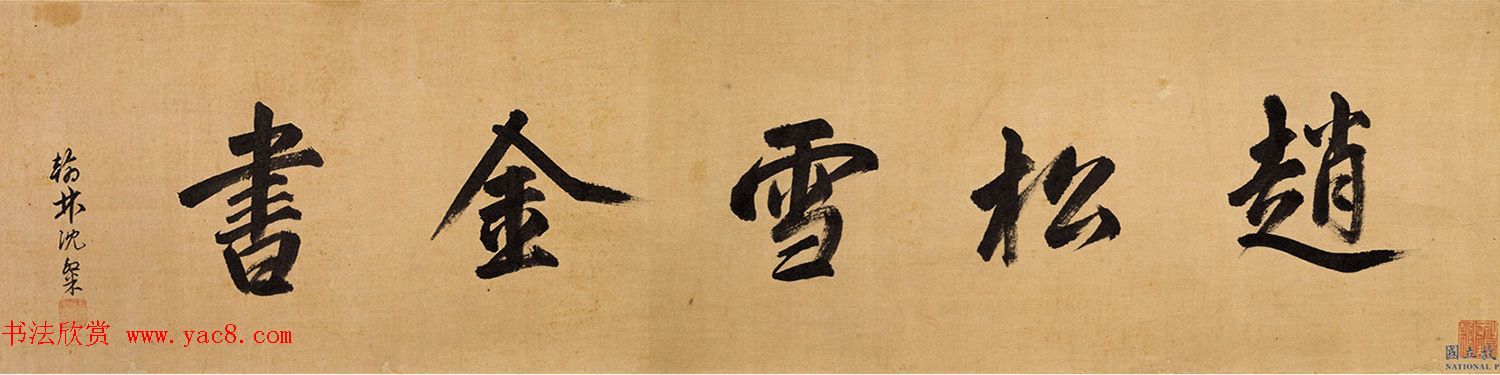 趙松雪金書
翰林沈粲
书法欣赏 www.yac8.com
國立故
NATIONAL P